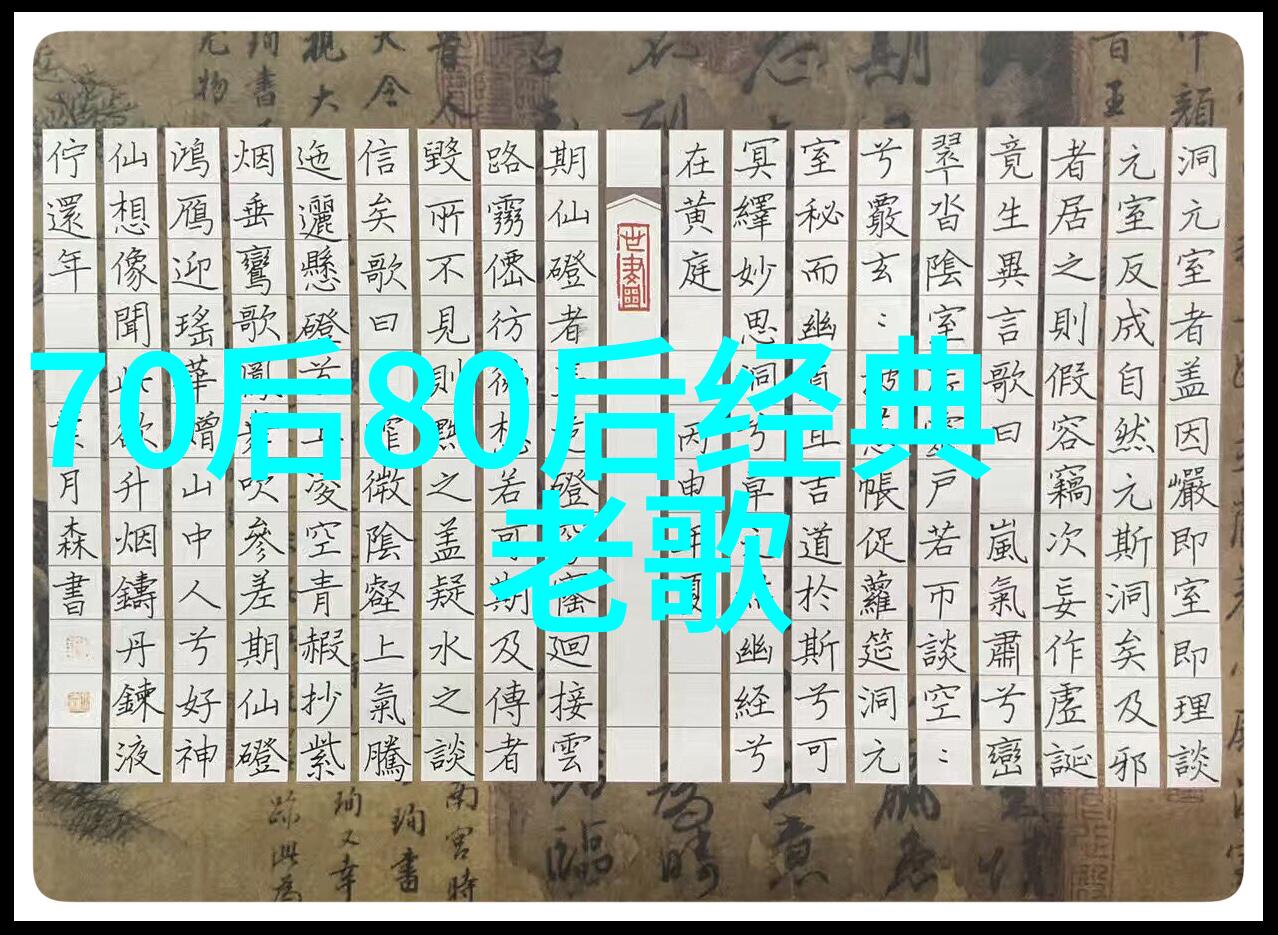 70后80后经典
老歌
洞元室者盖因巖即室即理談
元室反成自然元斯洞矣及邪
者居之則假容竊次妄作虛誕
竟生異言歌曰嵐氣肅兮巒
翠沓陰室戶若帀談空〻
兮覈玄〻蕙帳促蘿筵洞元
室秘而幽真且吉道於斯兮可
冥繹妙思洞兮草幽経兮
在黄庭丙申年夏
期仙磴者危磴穹窿迴接雲
路霧僊彷彿想若可期及傳者
毀所不見則黙之盖疑氷之談
信矣歌曰霏微陰壑上氣騰
迤邐懸磴兮上凌空青赮抄紫
烟垂鸞歌鳳舞吹參差期仙磴
鴻鴈迎瑤華贈山中人兮好神
仙想像聞此欲升烟鑄丹鍊液
佇還年月森書